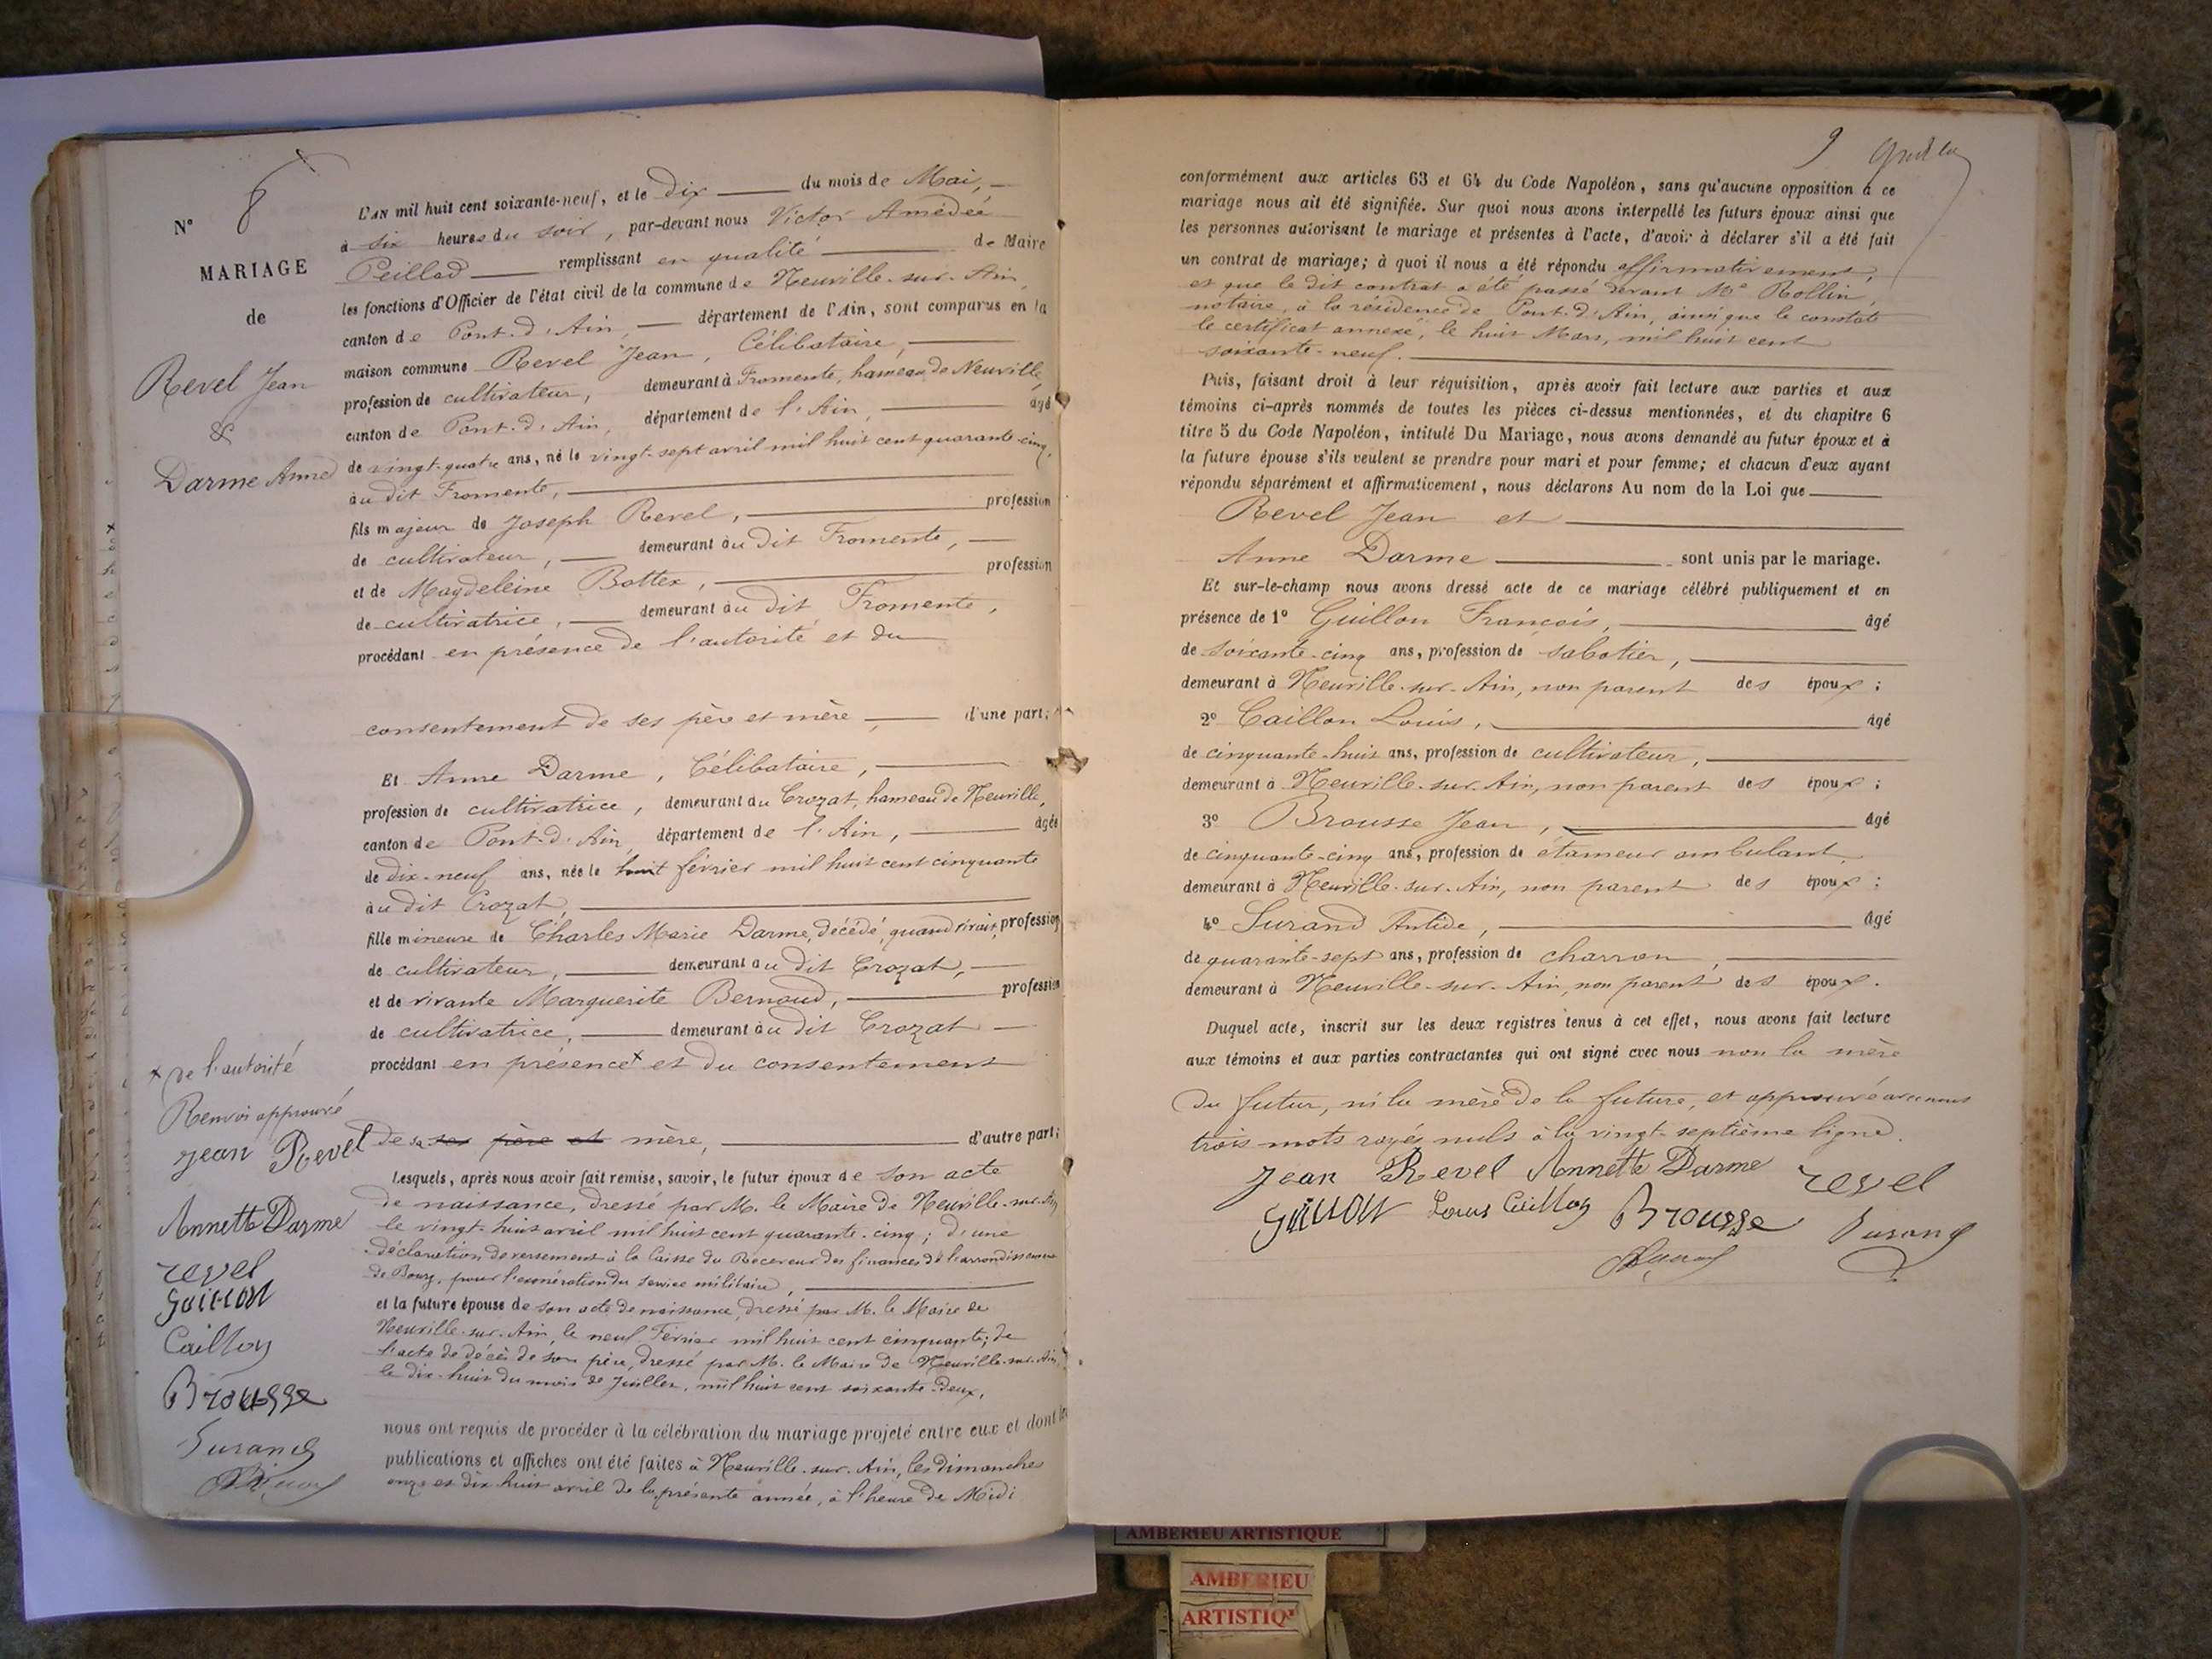 N° 8
MARIAGE
de
Revel Jean
&
Darme Anne
L'AN mil huit cent soixante-neuf, et le dix du mois de Mai,
à six heures du soir, par-devant nous Victor Amédée
Peillod remplissant en qualité de Maire
les fonctions d'Officier de l'état civil de la commune de Neuville-sur-Ain,
canton de Pont-d'Ain, département de l'Ain, sont comparus en la
maison commune Revel Jean, Célibataire,
profession de cultivateur, demeurant à Fromente, hameau de Neuville,
canton de Pont-d'Ain, département de l'Ain, âgé
de vingt-quatre ans, né le vingt-sept avril mil huit cent quarante-cinq,
au dit Fromente,
fils majeur de Joseph Revel, profession
de cultivateur, demeurant au dit Fromente,
et de Magdeleine Bottex, profession
de cultivatrice, demeurant au dit Fromente,
procédant en présence de l'autorité et du
consentement de ses père et mère, d'une part;
Et Anne Darme, Célibataire,
profession de cultivatrice, demeurant au Crozat, hameau de Neuville,
canton de Pont-d'Ain, département de l'Ain, âgée
de dix-neuf ans, née le huit février mil huit cent cinquante
au dit Crozat,
fille mineure de Charles Marie Darme, décédé, quand vivait, profession
de cultivateur, demeurant au dit Crozat,
et de vivante Marguerite Bernoud, profession
de cultivatrice, demeurant au dit Crozat
procédant en présence x et du consentement
x de l'autorité
Renvoi approuvé
Jean Revel
Annette Darme
revel
Guillon
Caillon
Brousse
Surand
de sa ses père et mère, d'autre part;
Lesquels, après nous avoir fait remise, savoir, le futur époux de son acte
de naissance, dressé par M. le Maire de Neuville-sur-Ain
le vingt-huit avril mil huit cent quarante-cinq; d'une
déclaration de versement à la Caisse du Receveur des finances de l'arrondissement
de Bourg, pour l'exonération du service militaire,
et la future épouse de son acte de naissance, dressé par M. le Maire de
Neuville-sur-Ain, le neuf Février mil huit cent cinquante; de
l'acte de décès de son père, dressé par M. le Maire de Neuville-sur-Ain,
le dix-huit du mois de Juillet, mil huit cent soixante-deux,
nous ont requis de procéder à la célébration du mariage projeté entre eux et dont les
publications et affiches ont été faites à Neuville-sur-Ain, les dimanches
onze et dix-huit avril de la présente année, à l'heure de Midi
9
conformément aux articles 63 et 64 du Code Napoléon, sans qu'aucune opposition à ce
mariage nous ait été signifiée. Sur quoi nous avons interpellé les futurs époux ainsi que
les personnes autorisant le mariage et présentes à l'acte, d'avoir à déclarer s'il a été fait
un contrat de mariage; à quoi il nous a été répondu affirmativement,
et que le dit contrat a été passé devant Me Rollin,
notaire, à la résidence de Pont-d'Ain, ainsi que le constate
le certificat annexé, le huit Mars, mil huit cent
soixante-neuf.
Puis, faisant droit à leur réquisition, après avoir fait lecture aux parties et aux
témoins ci-après nommés de toutes les pièces ci-dessus mentionnées, et du chapitre 6
titre 5 du Code Napoléon, intitulé Du Mariage, nous avons demandé au futur époux et à
la future épouse s'ils veulent se prendre pour mari et pour femme; et chacun d'eux ayant
répondu séparément et affirmativement, nous déclarons Au nom de la Loi que
Revel Jean et
Anne Darme sont unis par le mariage.
Et sur-le-champ nous avons dressé acte de ce mariage célébré publiquement et en
présence de 1° Guillon François, âgé
de soixante-cinq ans, profession de sabotier,
demeurant à Neuville-sur-Ain, non parent des époux;
2° Caillon Louis, âgé
de cinquante-huit ans, profession de cultivateur,
demeurant à Neuville-sur-Ain, non parent des époux;
3° Brousse Jean, âgé
de cinquante-cinq ans, profession de étameur ambulant,
demeurant à Neuville-sur-Ain, non parent des époux;
4° Surand Antide, âgé
de quarante-sept ans, profession de charron,
demeurant à Neuville-sur-Ain, non parent des époux.
Duquel acte, inscrit sur les deux registres tenus à cet effet, nous avons fait lecture
aux témoins et aux parties contractantes qui ont signé avec nous non la mère
du futur, ni la mère de la future, et approuvé avec nous
trois mots rayés nuls à la vingt-septième ligne.
Jean Revel Annette Darme revel
Guillon Louis Caillon Brousse Surand
AMBERIEU ARTISTIQUE
AMBERIEU
ARTISTIQ